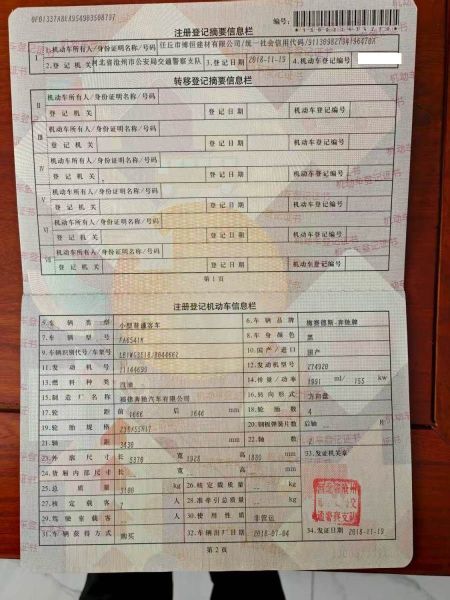 注册登记摘要信息栏
编号:
I 1.机动车所有人/身份证明名称/号码 任丘市博恒建材有限公司/统一社会信用代码/
2.登记机关 河北省沧州市公安局交通警察支队 3.登记日期 2018-11-19 4.机动车登记编号
转移登记摘要信息栏
II 机动车所有人/身份证明名称/号码
登记机关 登记日期 机动车登记编号
III 机动车所有人/身份证明名称/号码
登记机关 登记日期 机动车登记编号
IV 机动车所有人/身份证明名称/号码
登记机关 登记日期 机动车登记编号
V 机动车所有人/身份证明名称/号码
登记机关 登记日期 机动车登记编号
VI 机动车所有人/身份证明名称/号码
登记机关 登记日期 机动车登记编号
VII 机动车所有人/身份证明名称/号码
登记机关 登记日期 机动车登记编号
第1页
注册登记机动车信息栏
5.车辆类型 小型普通客车 6.车辆品牌 梅赛德斯-奔驰牌
7.车辆型号 FA6541H 8.车身颜色 黑
9.车辆识别代号/车架号 10.国产/进口 国产
11.发动机号 12.发动机型号 274920
13.燃料种类 汽油 14.排量/功率 1991 ml/ 155 kw
15.制造厂名称 福建奔驰汽车有限公司 16.转向形式 方向盘
17.轮距 前 1666 后 1646 mm 18.轮胎数 4
19.轮胎规格 20.钢板弹簧片数 后轴 --
21.轴距 3430 mm 22.轴数 2
23.外廓尺寸 长 5370 宽 1928 高 1880 mm 33.发证机关章
24.货厢内部尺寸 长 -- 宽 -- 高 -- mm
25.总质量 3100 kg 26.核定载质量 -- kg
27.核定载客 7 人 28.准牵引总质量 -- kg
29.驾驶室载客 -- 人 30.使用性质 非营运
31.车辆获得方式 购买 32.车辆出厂日期 2018-07-04 34.发证日期 2018-11-19
第2页